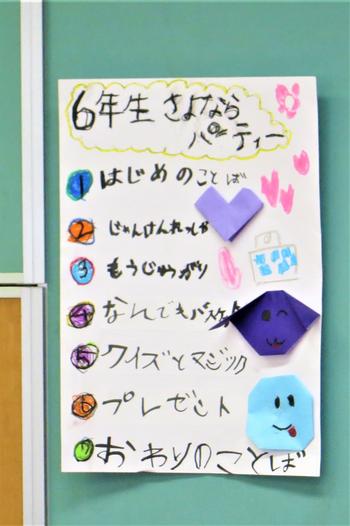 6年生 さよなら
パーティー
1 はじめのことば
2 じゃんけんれっしゃ
3 もうじゅうがり
4 なんでもバスケット
5 クイズとマジック
6 プレゼント
7 おわりのことば